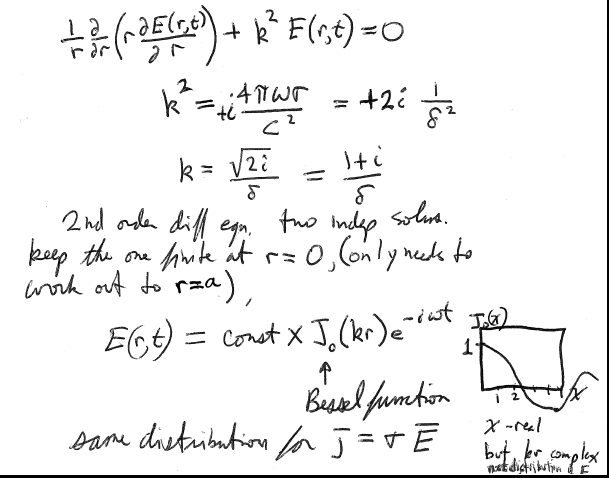 1/r ∂/∂r (r ∂E(r,t)/∂r) + k² E(r,t) = 0
k² = +i 4πωσ/c² = +2i 1/δ²
k = √2i/δ = 1+i/δ
2nd order diff eqn. two indep solns.
keep the one finite at r = 0, (only needs to
work out to r=a),
E(r,t) = const x J₀(kr) e^-iωt
J₀(x)
1
1 2
x
↑
Bessel function
same distribution for j̄ = σ Ē
x - real
but kr complex
distribution of E